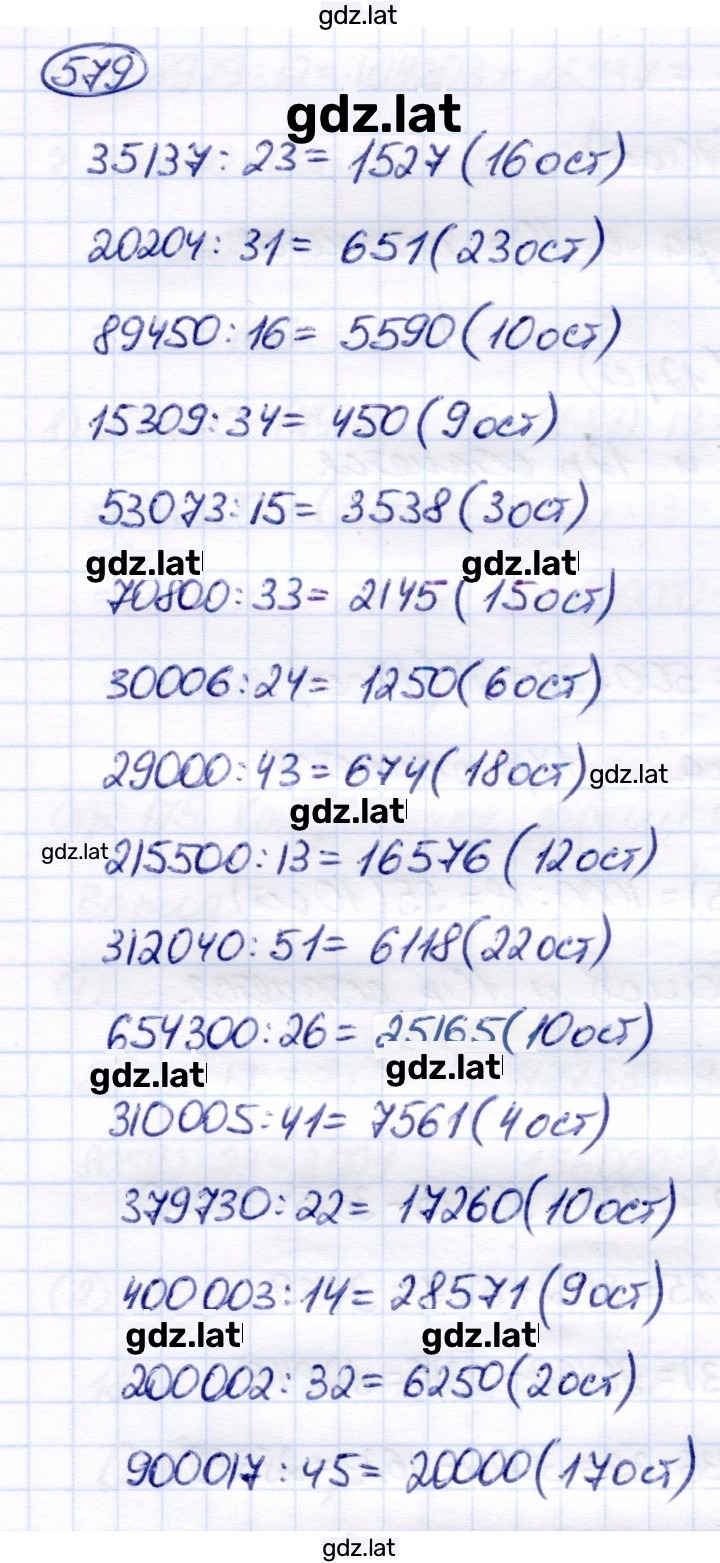 gdz.lat
579
gdz.lat
35137 : 23 = 1527 (16 ост)
20204 : 31 = 651 (23 ост)
89450 : 16 = 5590 (10 ост)
15309 : 34 = 450 (9 ост)
53073 : 15 = 3538 (3 ост)
gdz.lat gdz.lat
70800 : 33 = 2145 (15 ост)
30006 : 24 = 1250 (6 ост)
29000 : 43 = 674 (18 ост) gdz.lat
gdz.lat
gdz.lat 215500 : 13 = 16576 (12 ост)
312040 : 51 = 6118 (22 ост)
654300 : 26 = 25165 (10 ост)
gdz.lat gdz.lat
310005 : 41 = 7561 (4 ост)
379730 : 22 = 17260 (10 ост)
400003 : 14 = 28571 (9 ост)
gdz.lat gdz.lat
200002 : 32 = 6250 (2 ост)
900017 : 45 = 20000 (17 ост)
gdz.lat